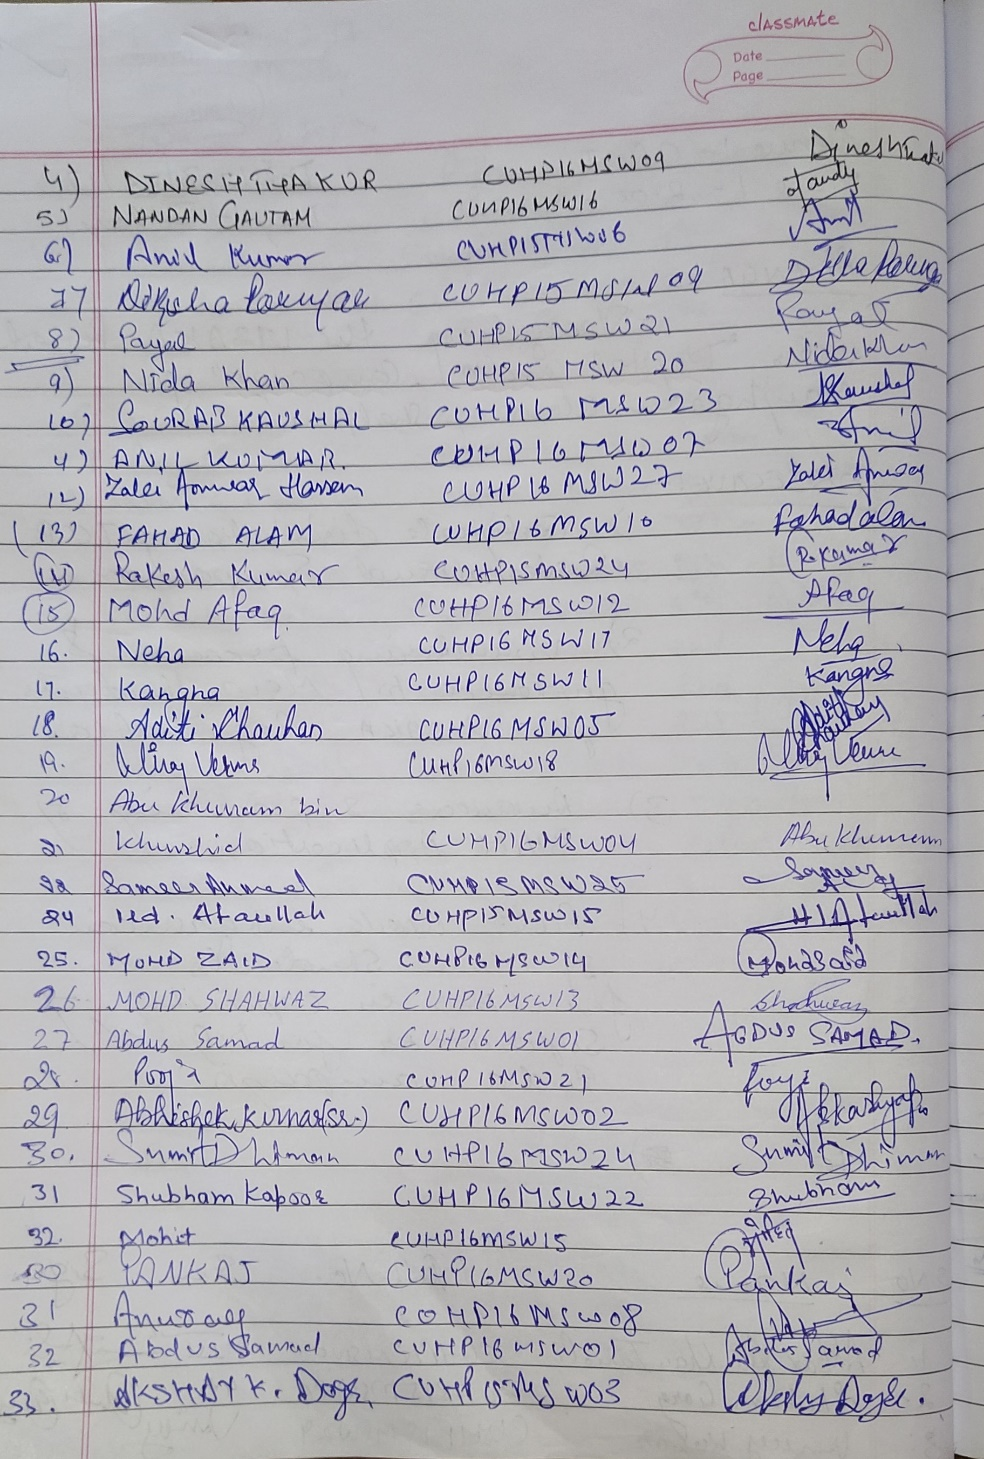 classmate
Date
Page
4) DINESH THAKUR CUHP16MSW09 Dinesh
5) NANDAN GAUTAM CUHP16MSW16
6) Anil Kumar CUHP15MSW06 Anil
7) Diksha Pariyar CUHP15MSW09
8) Payal CUHP15MSW21 Payal
9) Nida Khan CUHP15 MSW 20 Nida Khan
10) SOURAB KAUSHAL CUHP16 MSW23 Kaushal
11) ANIL KUMAR. CUHP16MSW07 Anil
12) Zaki Anwar Hassem CUHP16 MSW27 Zaki Anwar
(13) FAHAD ALAM CUHP16MSW10 Fahad alam
14 Rakesh Kumar CUHP15MSW24 R.Kumar
15 Mohd Afaq CUHP16MSW12 Afaq
16. Neha CUHP16MSW17 Neha
17. Kangna CUHP16MSW11 Kangna
18. Aditi Chauhan CUHP16MSW05 Aditi Chauhan
19. Verma CUHP16MSW18 Verma
20 Abu Khurram bin
21 Khurshid CUHP16MSW04 Abu Khurram
22 Sameer Ahmed CUHP15MSW25 Sameer
24 Md. Ataullah CUHP15MSW15 Ataullah
25. MOHD ZAID CUHP16MSW14 Mohd Zaid
26 MOHD SHAHWAZ CUHP16MSW13 Shahwaz
27 Abdus Samad CUHP16MSW01 ABDUS SAMAD.
28. Pooja CUHP16MSW21 Pooja
29 Abhishek Kumar(Sr.) CUHP16MSW02 Akashyap
30. Sumit Dhiman CUHP16MSW24 Sumit Dhiman
31 Shubham Kapoor CUHP16MSW22 Shubham
32. Mohit CUHP16MSW15 मोहित
30 PANKAJ CUHP16MSW20 Pankaj
31 Anurag CUHP16MSW08
32 Abdus Samad CUHP16MSW01 Abdus Samad
33. AKSHAY K. Dogra CUHP15MSW03 Akshay Dogra.